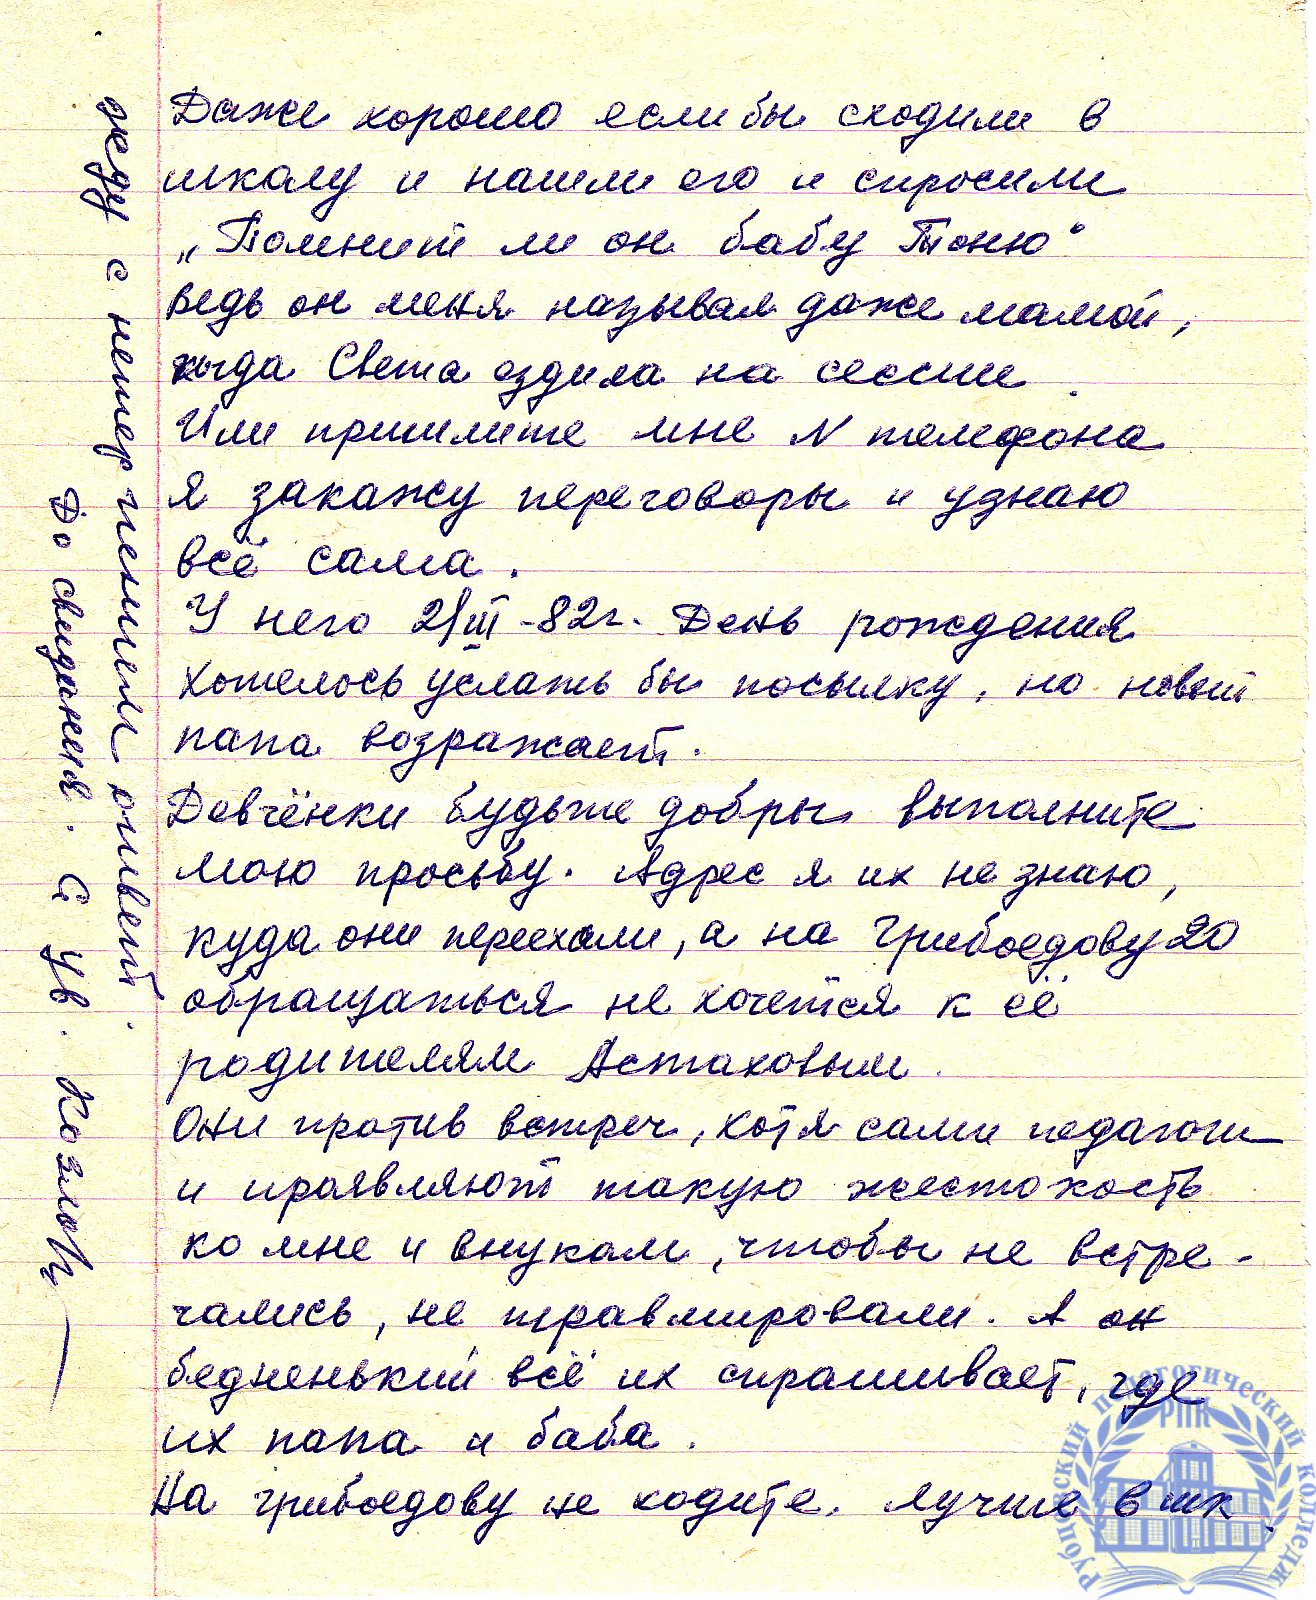 Даже хорошо если бы сходили в
школу и нашли его и спросили
„Помнит ли он бабу Тоню"
ведь он меня называл даже мамой,
когда Света ездила на сессии.
Или пришлите мне N телефона
я закажу переговоры и узнаю
всё сама.
У него 21/III-82г. День рождения
хотелось услать бы посылку, но новый
папа возражает.
Девчёнки будьте добры выполните
мою просьбу. Адрес я их не знаю,
куда они переехали, а на Грибоедову 20
обращаться не хочется к её
родителям Астаховым.
Они против встреч, хотя сами педагоги
и проявляют такую жестокость
ко мне и внукам, чтобы не встре-
чались, не травмировали. А он
бедненький всё их спрашивает, где
их папа и баба.
На Грибоедову не ходите. лучше в шк.
жду с нетерпением ответ.
До свидания. С ув. Козлов
Рубцовский педагогический колледж
РПК